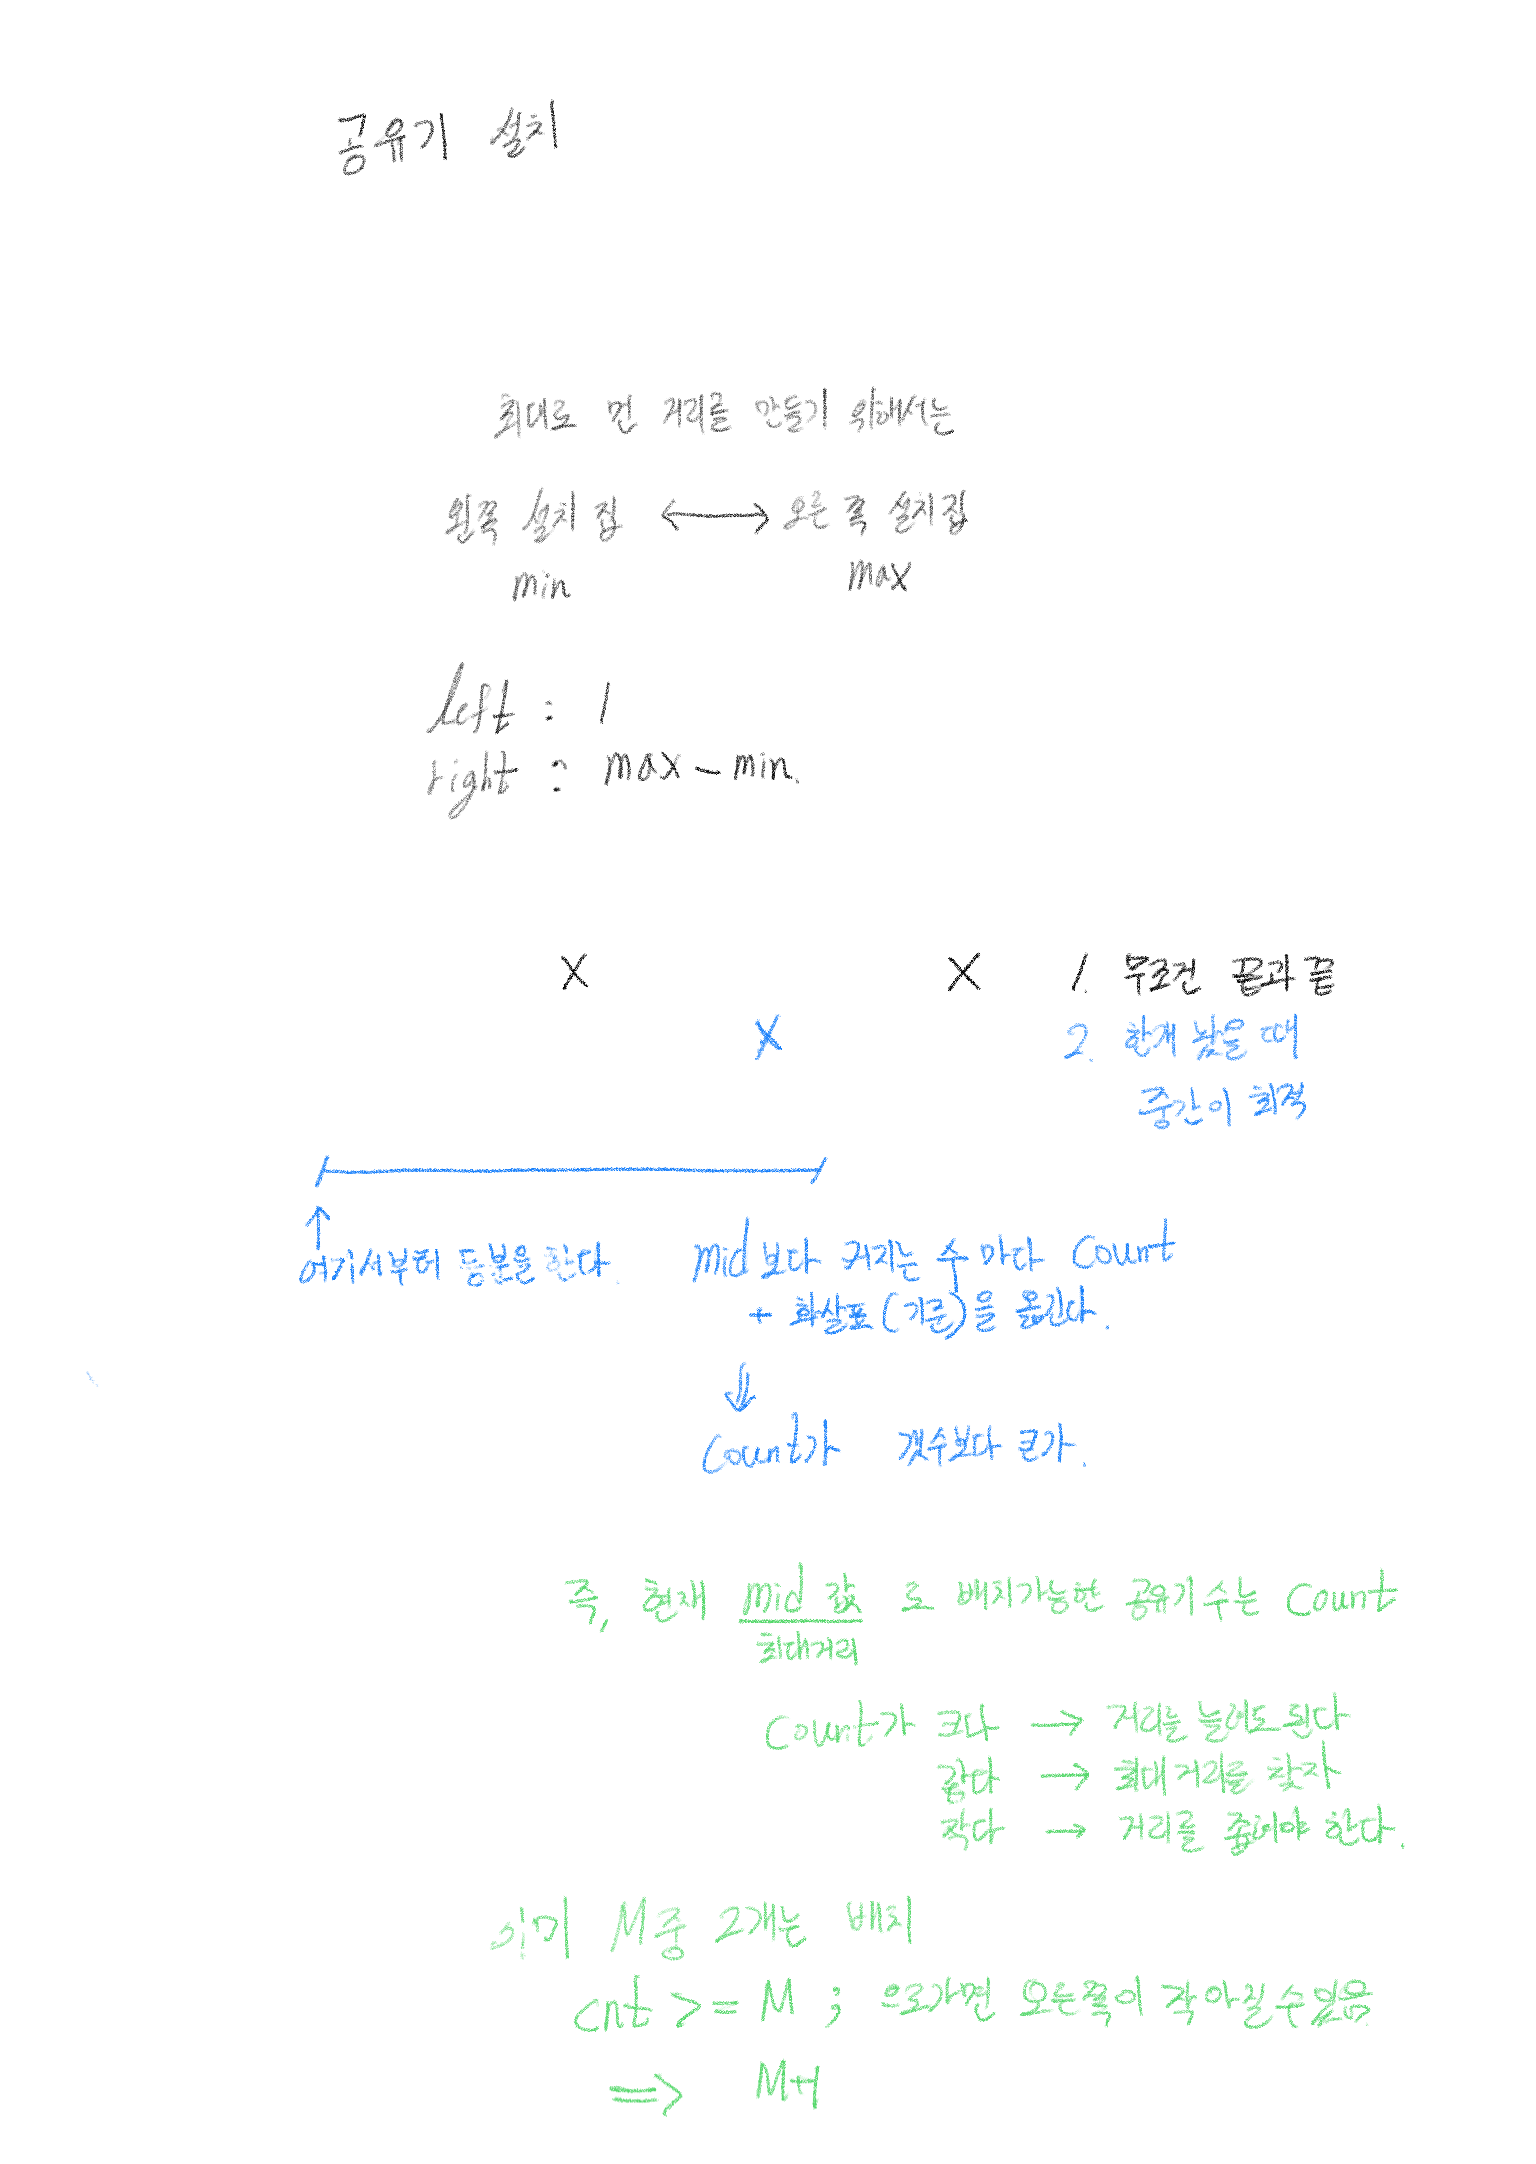 공유기 설치
최대로 먼 거리를 만들기 위해서는
왼쪽 설치 집 ⟷ 오른쪽 설치집
min max
left : 1
right : max - min.
X X 1. 무조건 끝과 끝
X 2. 한개 놨을 때
중간이 최적
↑
여기서부터 등분을 한다. mid 보다 커지는 수 마다 Count
+ 화살표(기준)을 옮긴다.
⇓
Count가 갯수보다 큰가.
즉, 현재 mid 값 로 배치가능한 공유기 수는 Count
최대거리
Count가 크다 → 거리를 늘려도 된다
같다 → 최대거리를 찾자
작다 → 거리를 좁혀야 한다.
이미 M중 2개는 배치
cnt >= M ; 으로가면 오른쪽이 작아질 수 있음
⇒ M+1